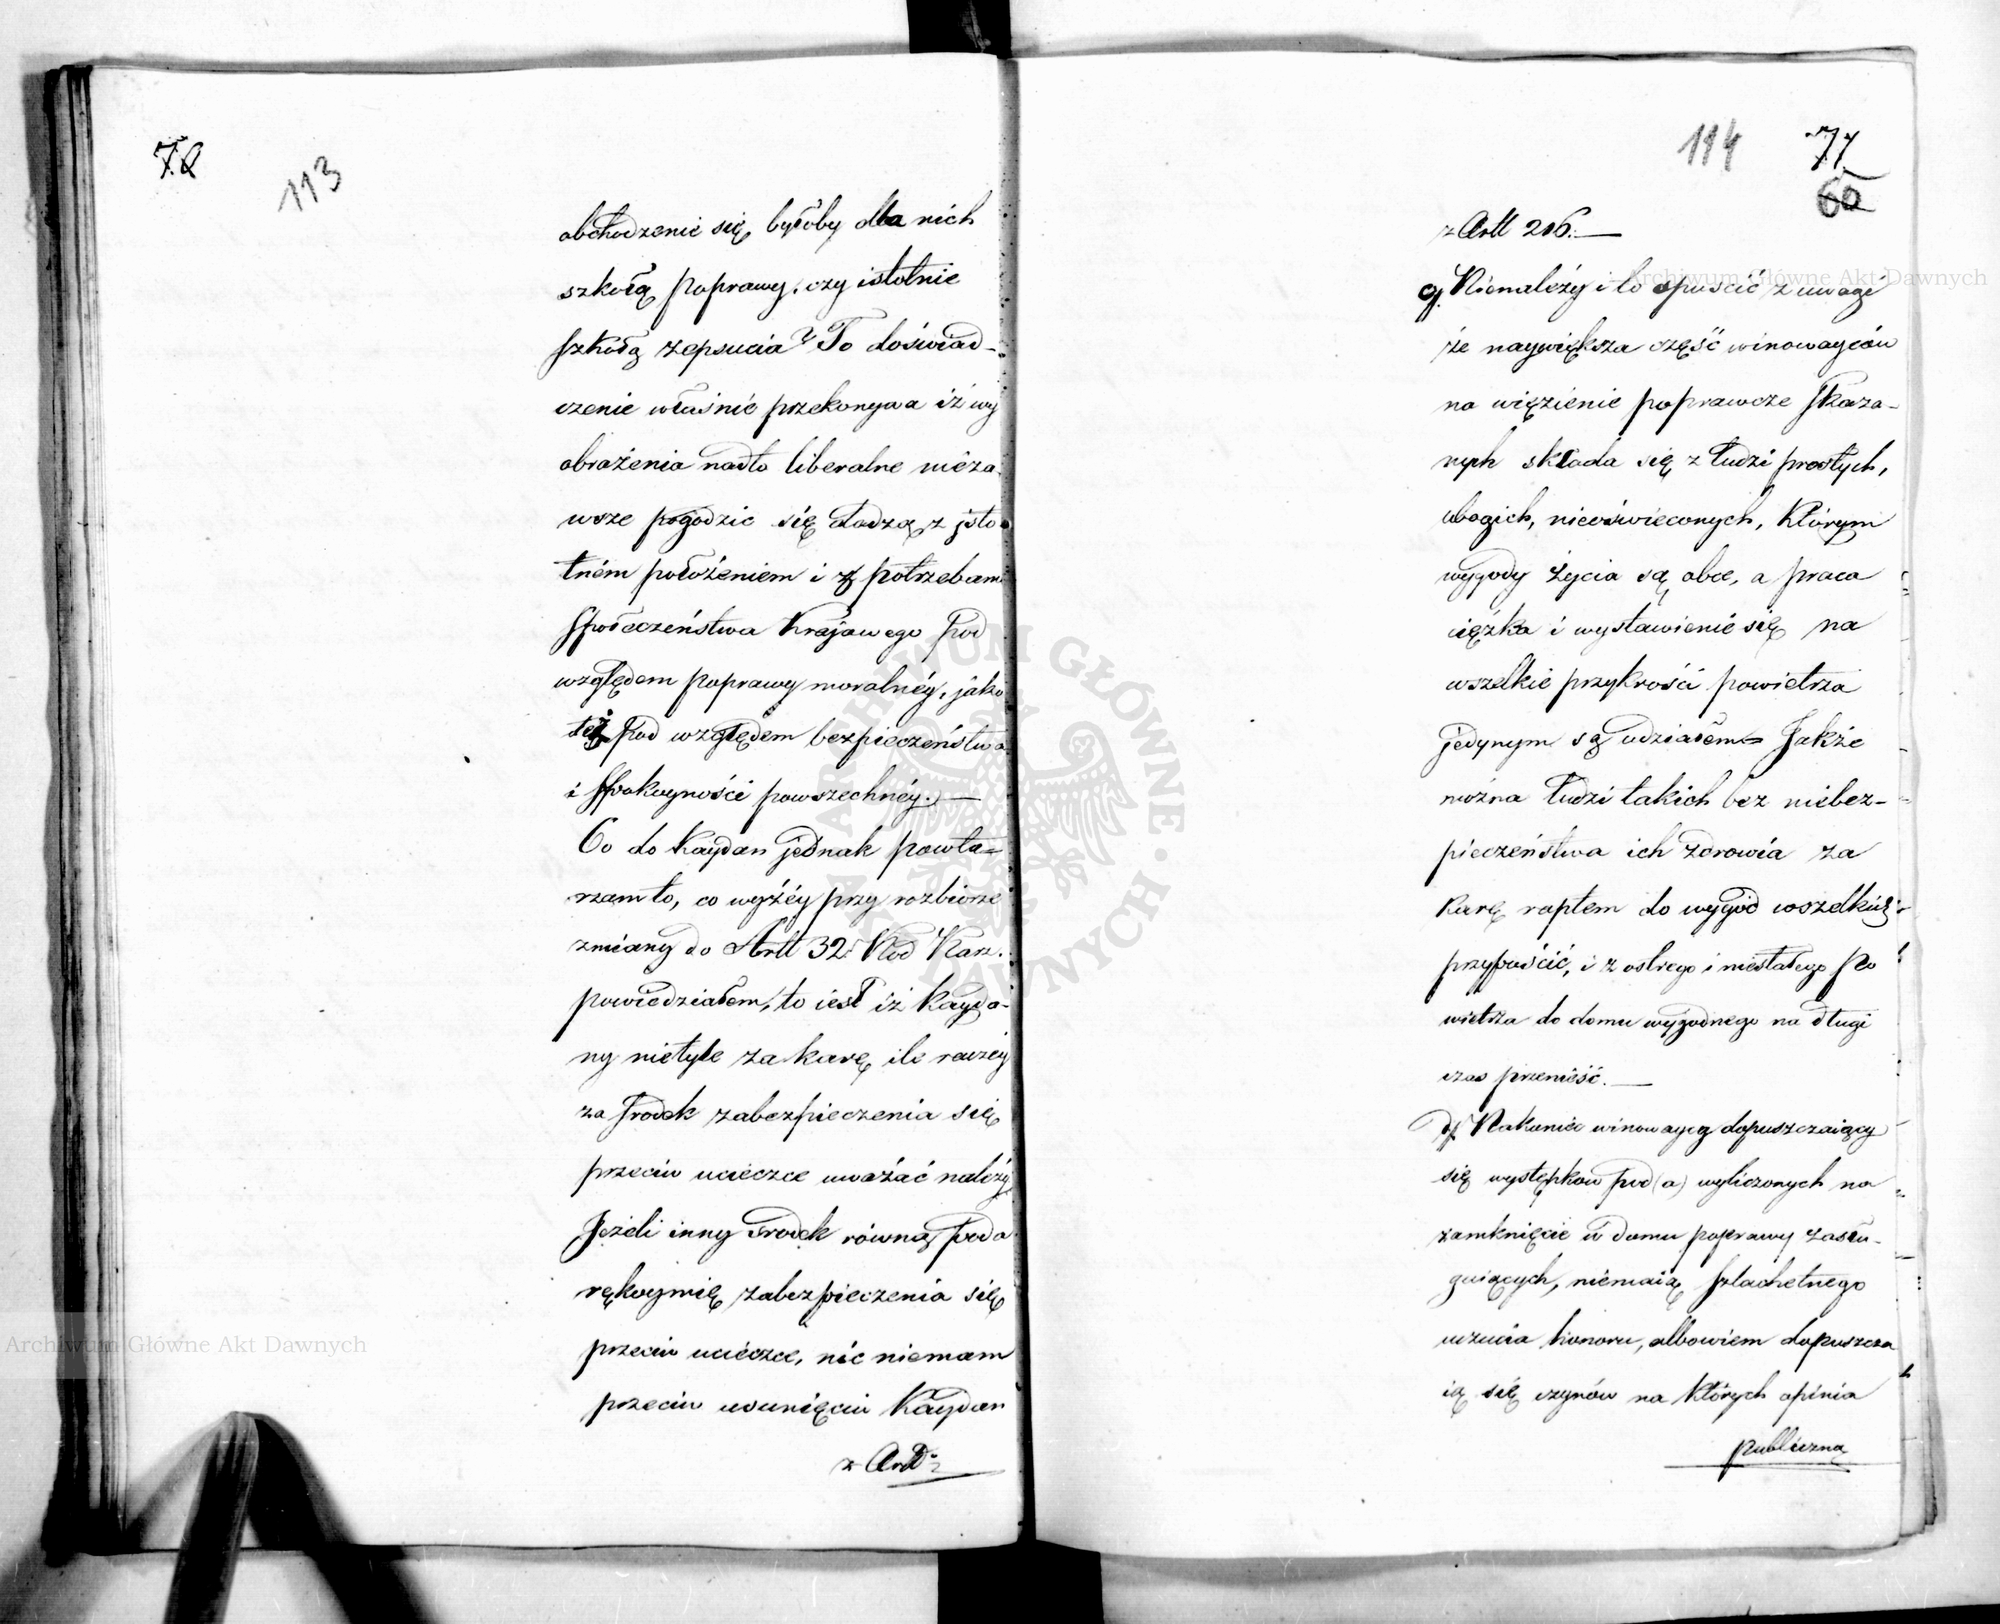 70
113
obchodzenie się byłoby dla nich
szkołą poprawy, czy istotnie
szkołą zepsucia? To doświad-
czenie właśnie przekonywa iż wy
obrażenia nadto liberalne nieza
wsze pogodzić się dadzą z isto
tném położeniem i z potrzebami
społeczeństwa krajowego pod
względem poprawy moralnéy, jako
też pod względem bezpieczeństwa
i spokoyności powszechnéy.—
Co do kaydan jednak powta=
rzam to, co wyżéy przy rozbiorze
zmiany do Artt 32 Kod Karz.
powiedziałem, to iest iż kayda-
ny nietyle za karę ile raczéy
za środek zabezpieczenia się
przeciw ucieczce uważać należy
Jeżeli inny środek równą poda
rękoymię zabezpieczenia się
przeciw ucieczce, nic niemam
przeciw usunięciu Kaydan
z Artt
114
71
60
z Artt 206.—
c) Nienależy i to spuścić z uwagi
że naywiększa część winowayców
na więzienie poprawcze skaza-
nych składa się z ludzi prostych,
ubogich, nieoświeconych, którym
wygody życia są obce, a praca
ciężka i wystawienie się na
wszelkie przykrości powietrza
jedynym są udziałem= Jakże
można ludzi takich bez niebez-
pieczeństwa ich zdrowia za
karę raptem do wygód wszelkich
przypuścić, i z ostrego i niestałego po
wietrza do domu wygodnego na długi
czas przenieść.—
d) Nakoniec winowaycy dopuszczaiący
się występków pod (a) wyliczonych na
zamknięcie w domu poprawy zasłu-
guiących, niemaią szlachetnego
uczucia honoru, albowiem dopuszcza
ią się czynów na których opinia
publiczna
Archiwum Główne Akt Dawnych
Archiwum Główne Akt Dawnych
ARCHIWUM GŁÓWNE AKT DAWNYCH